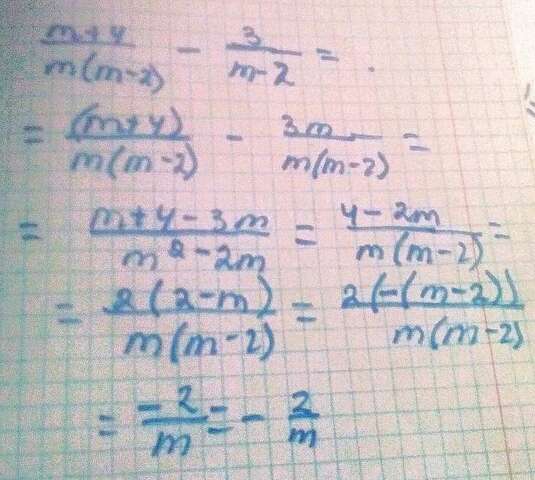 (m+4)/(m(m-2)) - 3/(m-2) =
= (m+4)/(m(m-2)) - 3m/(m(m-2)) =
= (m+4-3m)/(m²-2m) = (4-2m)/(m(m-2)) =
= 2(2-m)/(m(m-2)) = 2(-(m-2))/(m(m-2))
= -2/m = - 2/m